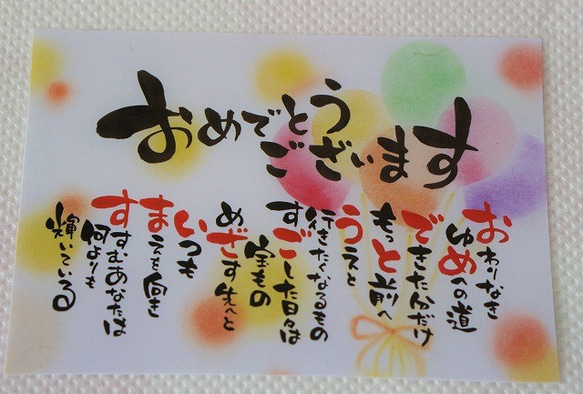 おめでとう
ございます
おわりなき
ゆめへの道
できた分だけ
もっと前へ
うえと
行きたくなるもの
すごした日々は
宝もの
めざす先へと
いつも
まえを向き
すすむあなたは
何よりも
輝いている